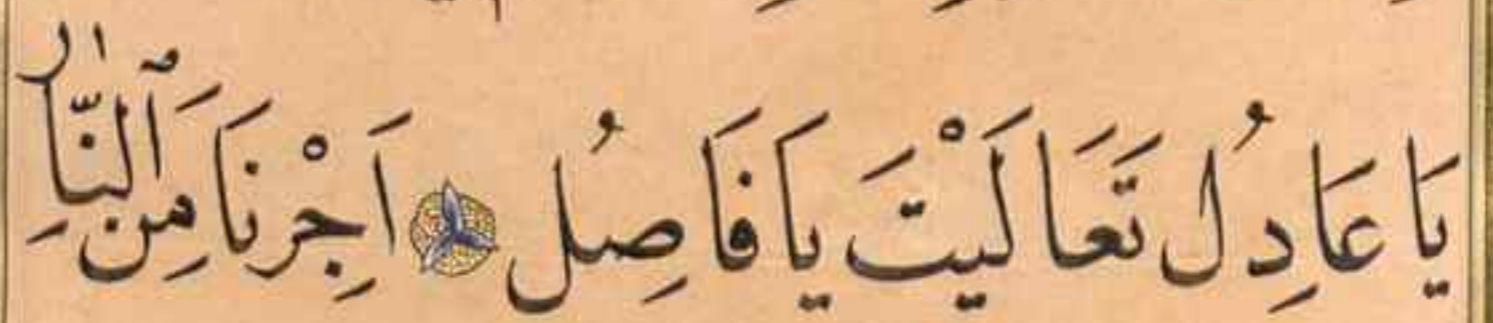 يَا عَادِلُ تَعَالَيْتَ يَا فَاصِلُ اَجِرْنَا مِنَ ٱلنَّارِ